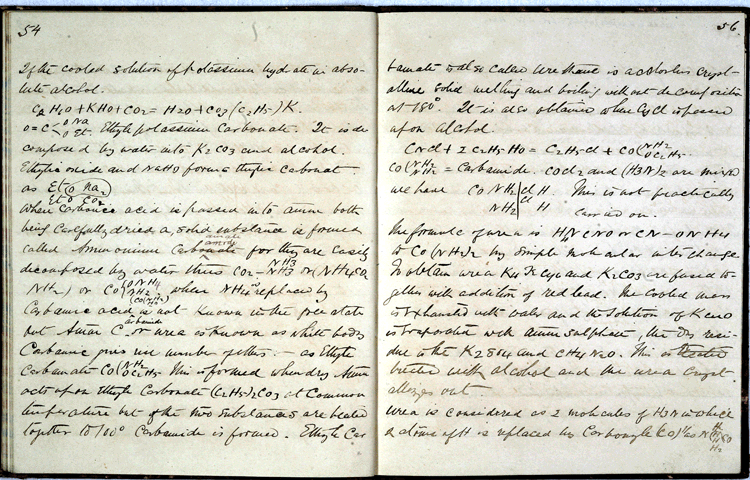 54
If the cooled solution of Potassium hydrate in abso-
lute alcohol.
C2H6O + KHO + CO2 = H2O + CO3(C2H5)K.
O=C-O Na
-O Et. Ethyl potassium Carbonate. It is de
composed by water into K2CO3 and alcohol.
Ethylic oxide and NaHO form ethylic carbonate
as Et O Na2
Et O CO2
When Carbonic acid is passed into amm both
being carefully dried a solid substance is formed
called Ammonium Carbonate for they are easily
decomposed by water thus CO2 - NH3 NH3 or (NH4 CO2
NH2) or CO(ONH4 NH2 where NH4 replaced by
Carbamic acid is not known in the free state
but Amm C. or urea is known as white body
carbamide
Carbamic gives us number of ethers. - as Ethyl
Carbamate CO(NH2 OC2H5. This is formed when dry Amm
acts upon Ethyl Carbonate (C2H5)2CO3 at Common
temperature but if the two substances are heated
together to 100° Carbamide is formed. Ethyl Car
56.
bamate is also called Urethane is a colorless cryst-
alline solid melting and boiling without decomposition
at 180°. It is also obtained when CyCl is passed
upon alcohol.
CNCl + 2 C2H5HO = C2H5Cl + CO(NH2 OC2H5.
CO(NH2 NH2 = Carbamide. COCl2 and (H3N)2 are mixed
we have CO NH2 Cl H. This is not practically
NH2 Cl H carried on.
The formula of urea is H4N CNO or CN - ONH4
to CO(NH2)2 by simple molecular interchange.
To obtain urea K4FeCy6 and K2CO3 are fused to-
gether with addition of red lead. The cooled mass
is exhausted with water and the solution of KCNO
is evaporated with amm sulphate, the dry resi-
due is the K2SO4 and CH4N2O. This is
treated with alcohol and the urea cryst-
allizes out.
Urea is considered as 2 molecules of H3N in which
2 atoms of H is replaced by Carbonyle (CO)" as